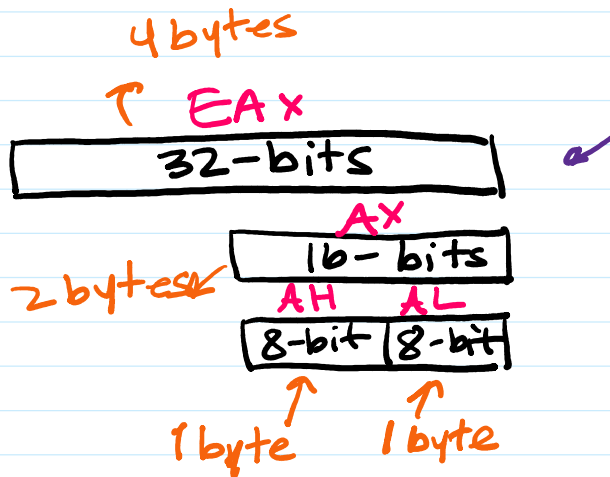 4 bytes
EAX
32-bits
AX
16-bits
2 bytes
AH AL
8-bit 8-bit
1 byte 1 byte